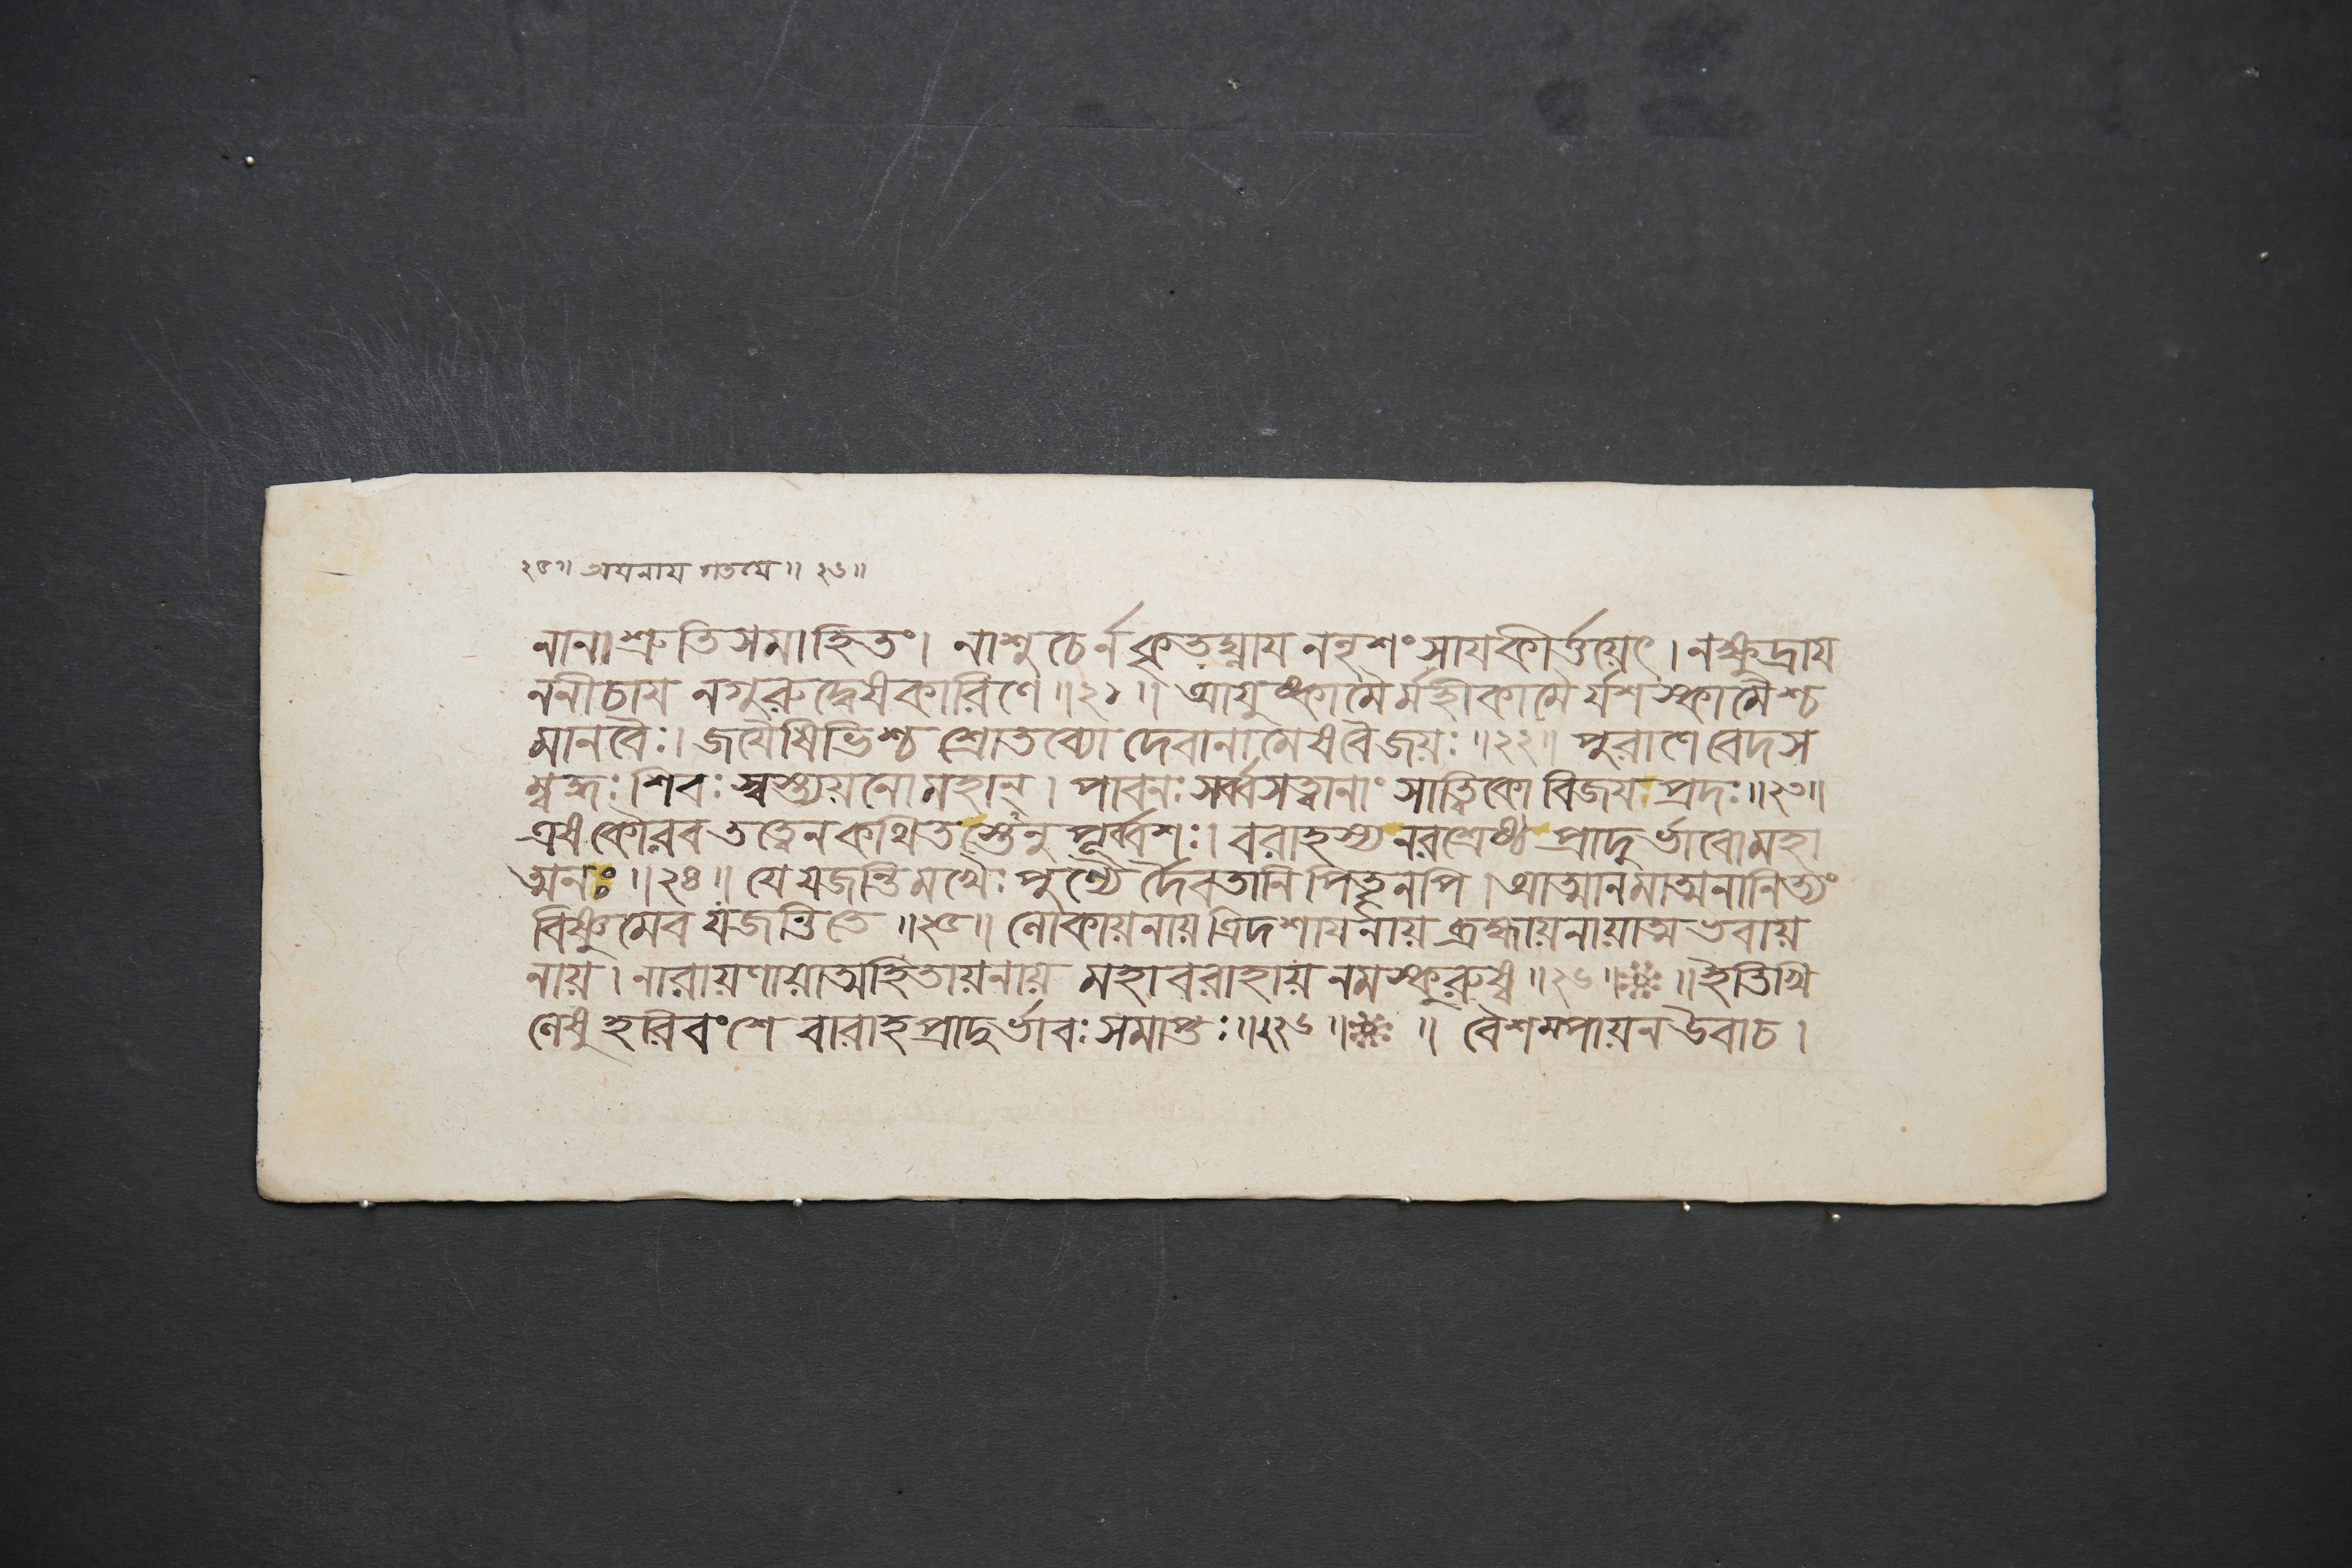 ২৫॥ অয়নায় গতয়ে॥ ২৬॥
নানাশ্রুতিসমাহিতং। নাশুচের্ন কৃতঘ্নায ননৃশংসাযকীর্ত্তয়েৎ। নক্ষুদ্রায
ননীচায নগুরুদ্বেষকারিণে॥২১॥ আয়ুষ্কামৈর্মহীকামৈর্যশস্কামৈশ্চ
মানবৈঃ। জযৈষিভিশ্চ শ্রোতব্যো দেবানামেষবৈজয়ঃ॥২২॥ পুরাণে বেদস
ম্বদ্ধঃ শিবঃ স্বস্ত্যয়নোমহান্। পাবনঃ সর্ব্বসত্ত্বানাং সাত্ত্বিকো বিজয়প্রদঃ॥২৩॥
এষ কৌরব তত্ত্বেন কথিতস্তেনু পূর্ব্বশঃ। বরাহস্য নরশ্রেষ্ঠ প্রাদুর্ভাবোমহা
ত্মনঃ॥২৪॥ যে যজন্তি মখৈঃ পুণ্যৈর্দৈবতানি পিতৄনপি। আত্মানমাত্মনানিত্যং
বিষ্ণুমেব যজন্তিতে॥২৫॥ লোকায়নায় ত্রিদশায়নায় ব্রহ্মায়নায়াত্মভবায়
নায়। নারায়ণায়াত্মহিতায়নায় মহাবরাহায় নমস্কুরুষ্ব॥২৬॥ ॥ইতিখি
লেষু হরিবংশে বারাহপ্রাদুর্ভাবঃ সমাপ্তঃ॥২২৬॥ ॥ বৈশম্পায়ন উবাচ।